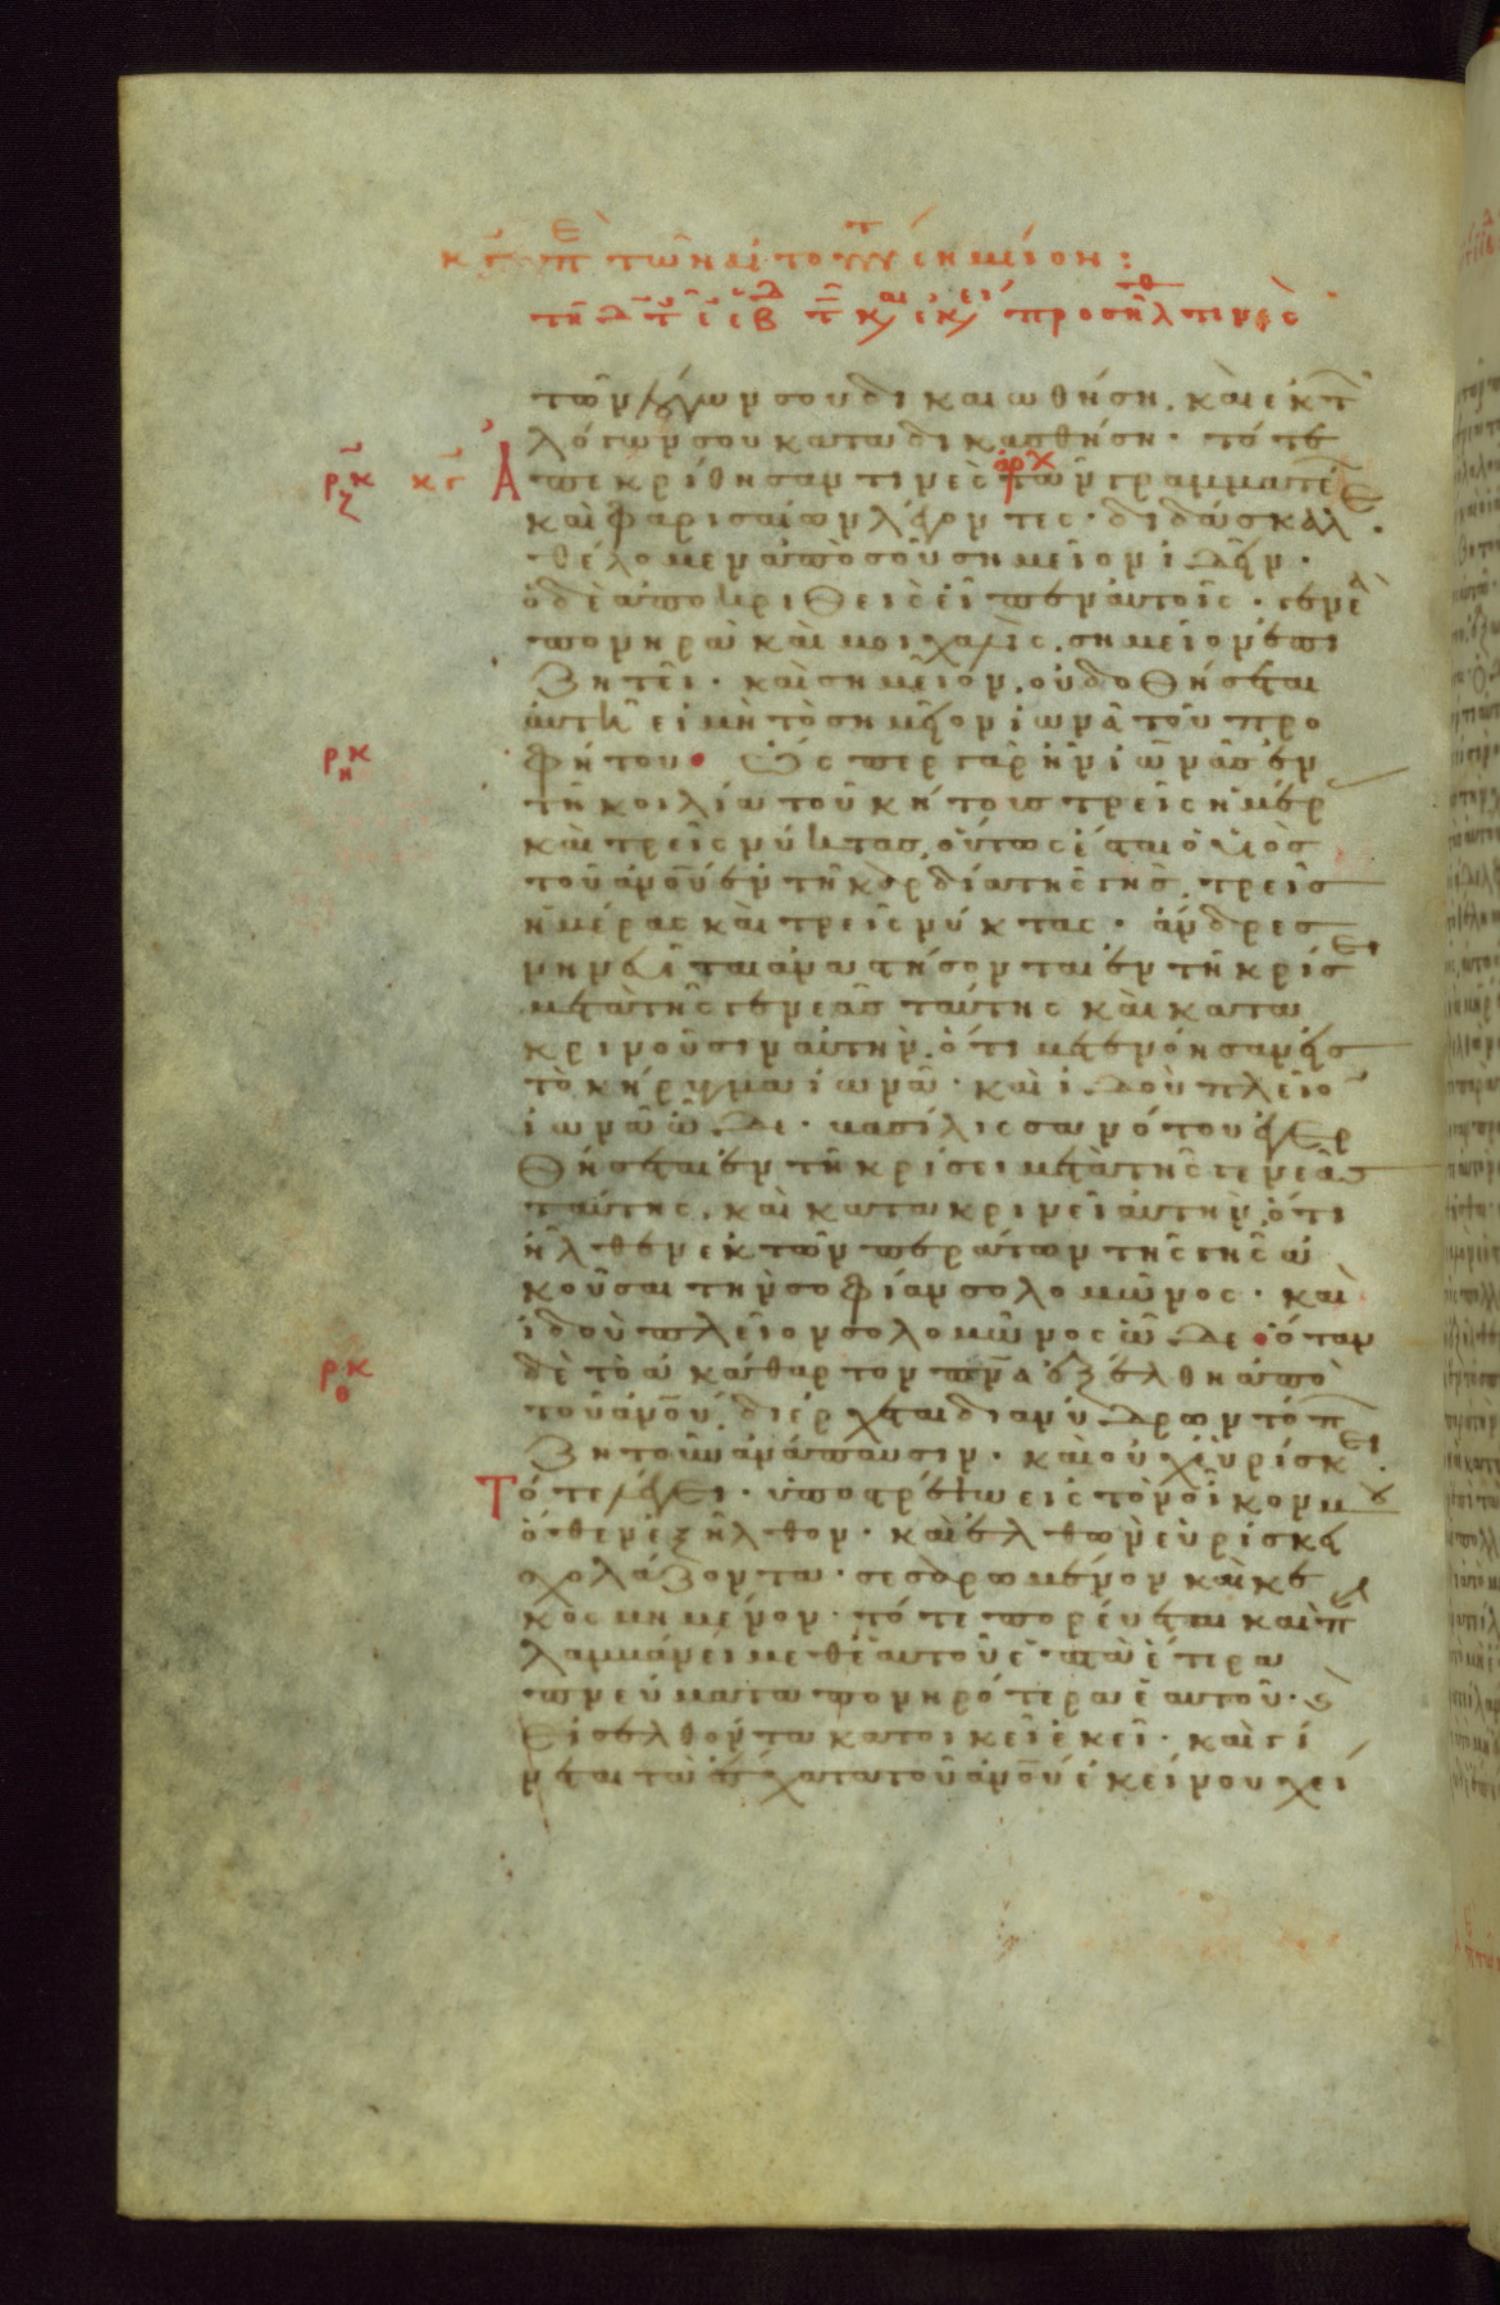 κγ πε τῶν αἰτούντ σημεῖον:
τῇ δ τ ε εβδ τ κ αι εκ ει προσῆλθ τινὲς
τῶν λόγων σου δικαιωθήση. καὶ ἐκ τ
λόγων σου καταδικασθήση. τότε
ρκζ κγ Ἀπεκρίθησαν τινὲς αρχ τῶν γραμματέ
καὶ φαρισαίων λέγοντες. διδάσκαλ.
θέλομεν ἀπὸ σοῦ σημεῖον ἰδεῖν.
ὁ δὲ ἀποκριθεὶς εἶπεν αὐτοῖς. γενεὰ
πονηρὰ καὶ μοιχαλὶς. σημεῖον ἐπι
ζητεῖ. καὶ σημεῖον, οὐ δοθήσεται
αὐτῆ εἰ μὴ τὸ σημεῖον ἰωνᾶ τοῦ προ
ρκη φήτου. Ὥσπερ γὰρ ἦν ἰωνᾶσ ἐν
τῆ κοιλία τοῦ κήτουσ τρεῖς ἡμέρ
καὶ τρεῖς νύκτασ, οὕτως ἔσται ὁ υἱὸσ
τοῦ ἀνοῦ ἐν τῆ καρδία τῆς γῆσ. τρεῖσ
ἡμέρας καὶ τρεῖς νύκτας. ἄνδρεσ
νινευῖται ἀναστήσονται ἐν τῆ κρίσει
μετὰ τῆς γενεᾶσ ταύτης καὶ κατα
κρινοῦσιν αὐτὴν. ὅτι μετενόησαν εἰσ
τὸ κήρυγμα ἰωνᾶ. καὶ ἰδοὺ πλεῖο
ἰωνᾶ ὧδε. βασίλισσα νότου ἐγερ
θήσεται ἐν τῆ κρίσει μετὰ τῆς γενεᾶσ
ταύτης. καὶ κατακρινεῖ αὐτὴν, ὅτι
ἦλθεν ἐκ τῶν περάτων τῆς γῆς ἀ
κοῦσαι τὴν σοφίαν σολομῶνος. καὶ
ἰδοὺ πλεῖον σολομῶνος ὧδε. ὅταν
ρκθ δὲ τὸ ἀκάθαρτον πνα ἐξέλθη ἀπὸ
τοῦ ἀνοῦ, διέρχεται δι ἀνύδρων τόπ
ζητοῦν ἀνάπαυσιν. καὶ οὐχ εὑρίσκει.
Τότε λέγει. ὑποστρέψω εἰς τὸν οἶκον μου
ὅθεν ἐξῆλθον. καὶ ἐλθὼν εὑρίσκει
σχολάζοντα. σεσαρωμένον καὶ κε
κοσμημένον. τότε πορεύεται καὶ παρα
λαμβάνει μεθ ἑαυτοῦ ἑπτὰ ἕτερα
πνεύματα πονηρότερα ἑαυτοῦ. καὶ
εἰσελθόντα κατοικεῖ ἐκεῖ. καὶ γί
νεται τὰ ἔσχατα τοῦ ἀνοῦ ἐκείνου χεί